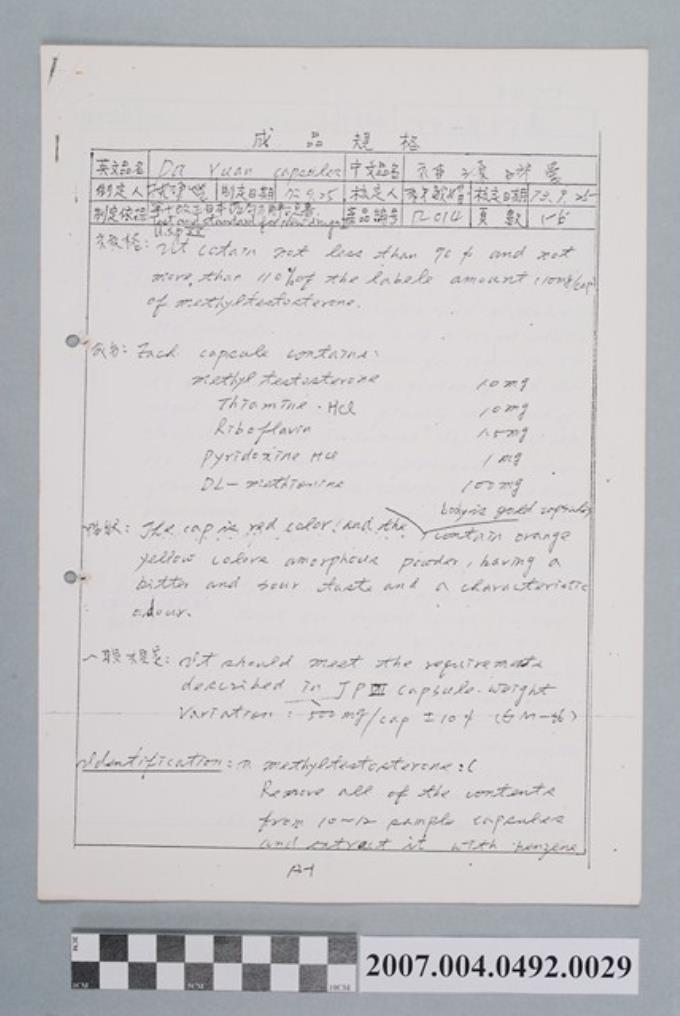 成品規格
英文品名 Da Yuan capsules 中文品名
制定人 制定日期 72.9.25 核定人 核定日期 72.9.25
制定依据 Test and standard for new drugs 產品編號 R014 頁數 1-6
U.S.P
規格: It cotain not less than 90% and not
more than 110% of the labels amount (10mg/cap)
of methyltestosterone.
成分: Each capsule contains:
methyltestosterone 10mg
Thiamine · HCl 10mg
Riboflavin 1.5mg
pyridoxine HCl 1mg
DL-methionine 100mg
body is gold capsules
The cap is red color, and the contain orange
yellow colors amorphous powder, having a
bitter and sour taste and a characteristic
odour.
It should meet the requirements
described in JP capsule weight
Variation: 500mg/cap ±10%
Identification: methyltestosterone:
Remove all of the contents
from 10~12 sample capsules
and extract it with benzene
A-1
2007.004.0492.0029